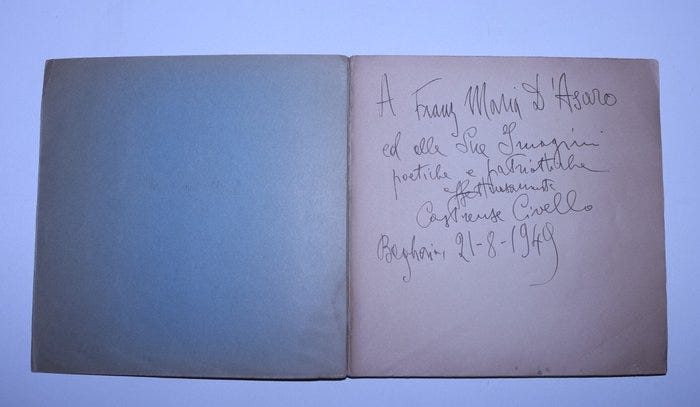 A Franz Maria D'Asaro
ed alle Sue Imagini
poetiche e patriottiche
affettuosamente
Castrense Civello
Bagheria, 21-8-1949